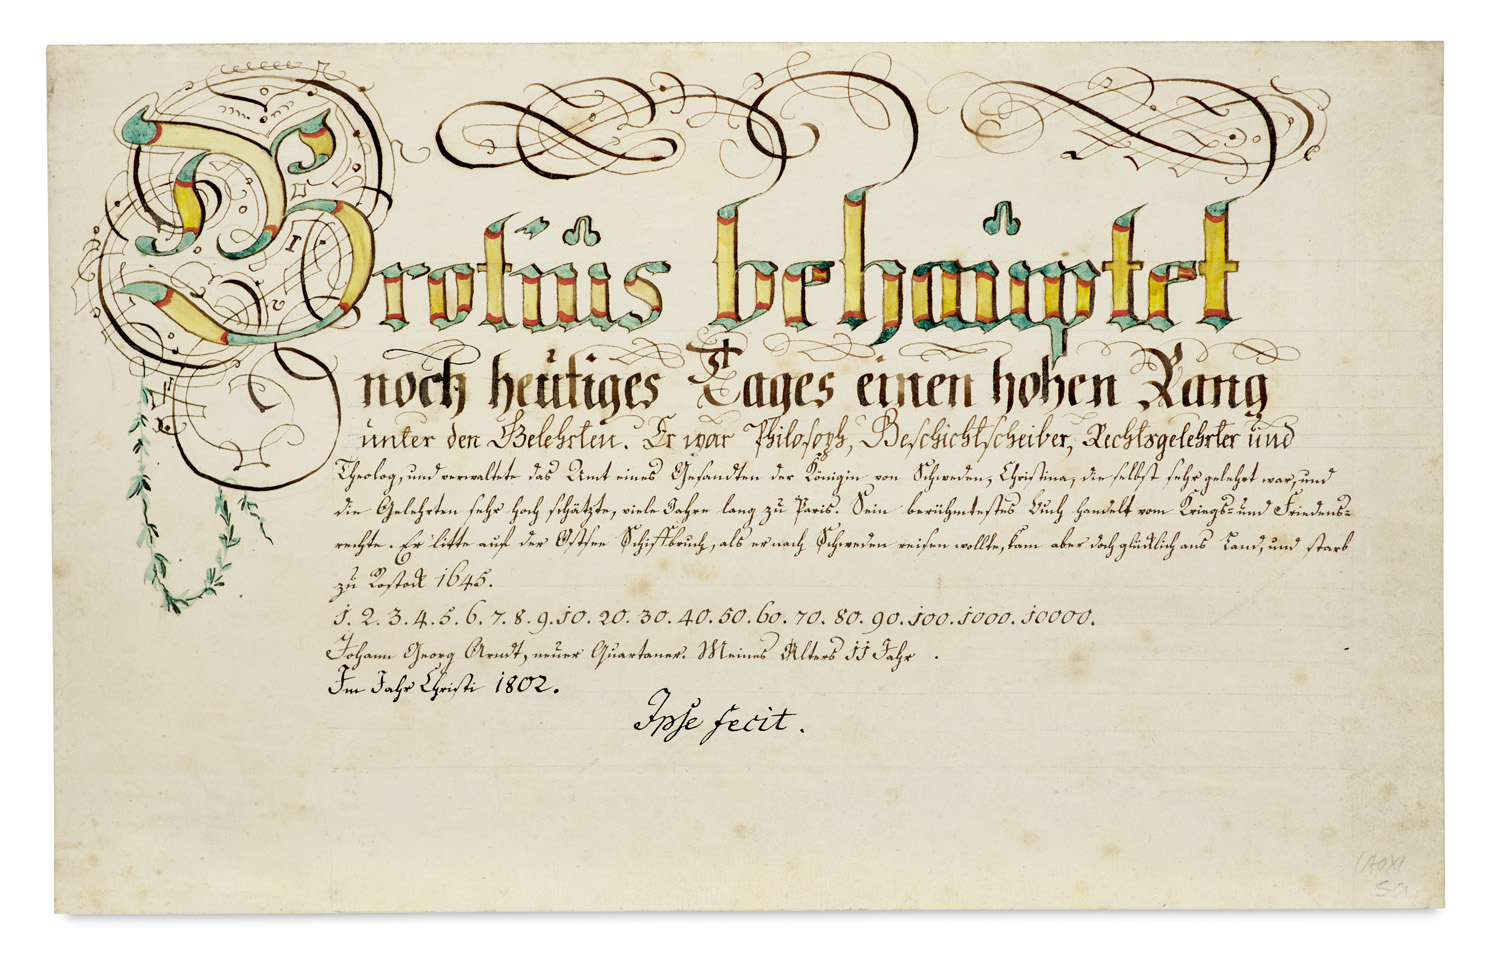 Grotius behauptet
noch heutiges Tages einen hohen Rang
unter den Gelehrten. Er war Philosoph, Geschichtscheiber, Rechtsgelehrter und
Theolog, und verwaltete das Amt eines Gesandten der Königin von Schweden, Christina, die selbst sehr gelehrt war, und
die Gelehrten sehr hoch schätzte, viele Jahre lang zu Paris. Sein berühmtestes Buch handelt vom Kriegs= und Friedens=
rechte. Er litte auf der Ostsee Schiffbruch, als er nach Schweden reisen wollte, kam aber doch glücklich ans Land, und starb
zu Rostock 1645.
1. 2. 3. 4. 5. 6. 7. 8. 9. 10. 20. 30. 40. 50. 60. 70. 80. 90. 100. 1000. 10000.
Johann Georg Arndt, neuer Quartaner. Meines Alters 11 Jahr.
Im Jahr Christi 1802.
Ipse fecit.